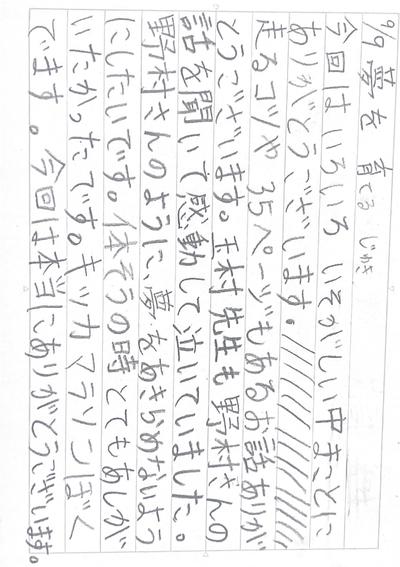 9/9 夢を育てる
今回はいろいろいそがしい中まことに
ありがとうございます。
走るコツや35ページもあるお話ありが
とうございます。玉村先生も野村さんの
話を聞いて感動して泣いていました。
野村さんのように、夢をあきらめないよう
にしたいです。体そうの時とてもあしが
いたかったです。キッカマラソンぼく
でます。今回は本当にありがとうございます。